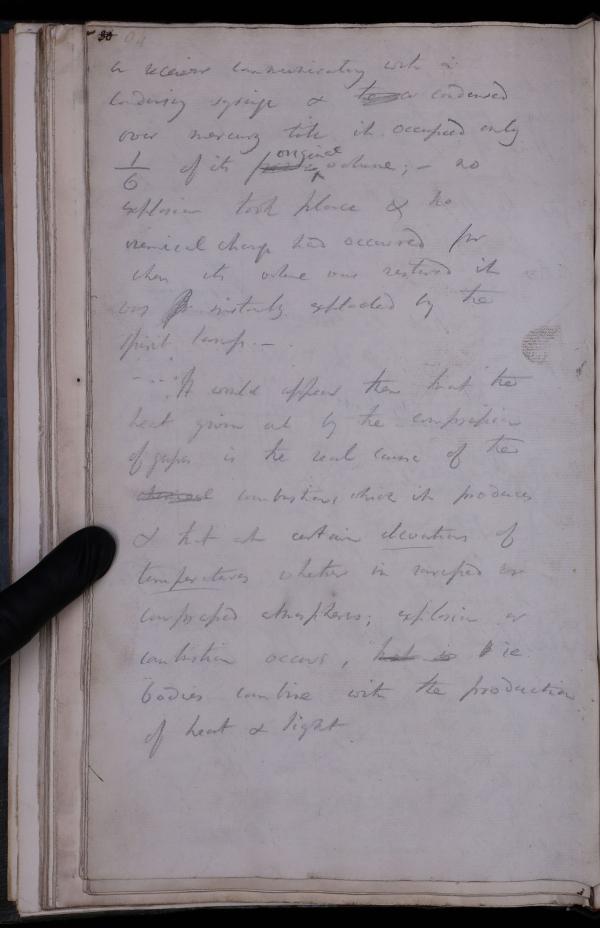 a receiver communicating with a
condensing syringe & condensed
over mercury till it occupied only
1/6 of its original volume; - no
explosion took place & no
chemical change had occurred for
when its volume was restored it
was instantly exploded by the
spirit lamp. -
It would appear then that the
heat given out by the compression
of gases is the real cause of the
combustion which it produces
& that at certain elevations of
temperatures whether in rarefied or
compressed atmospheres; explosion or
combustion occurs, that is ie
bodies combine with the production
of heat & light